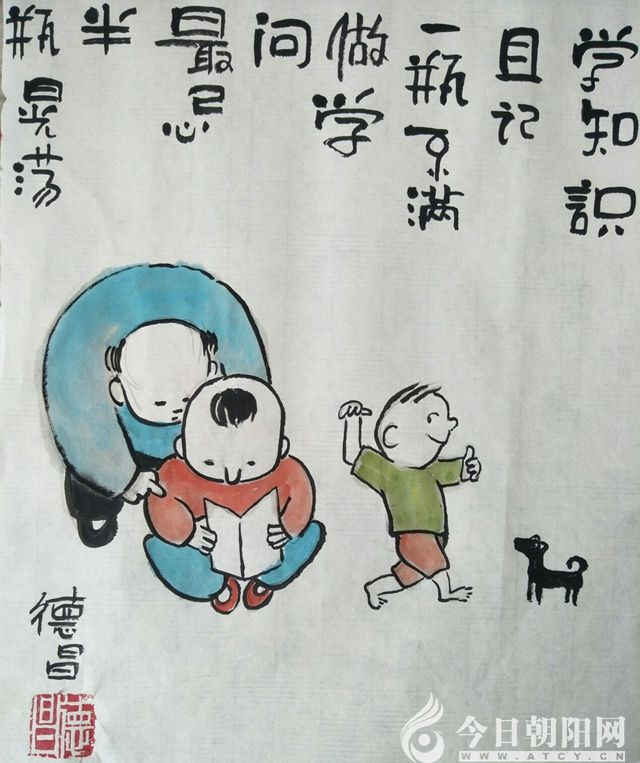 学知识
且记
一瓶不满
做学
问
最忌
半
瓶晃荡
德昌
德昌
今日朝阳网
WWW.ATCY.CN